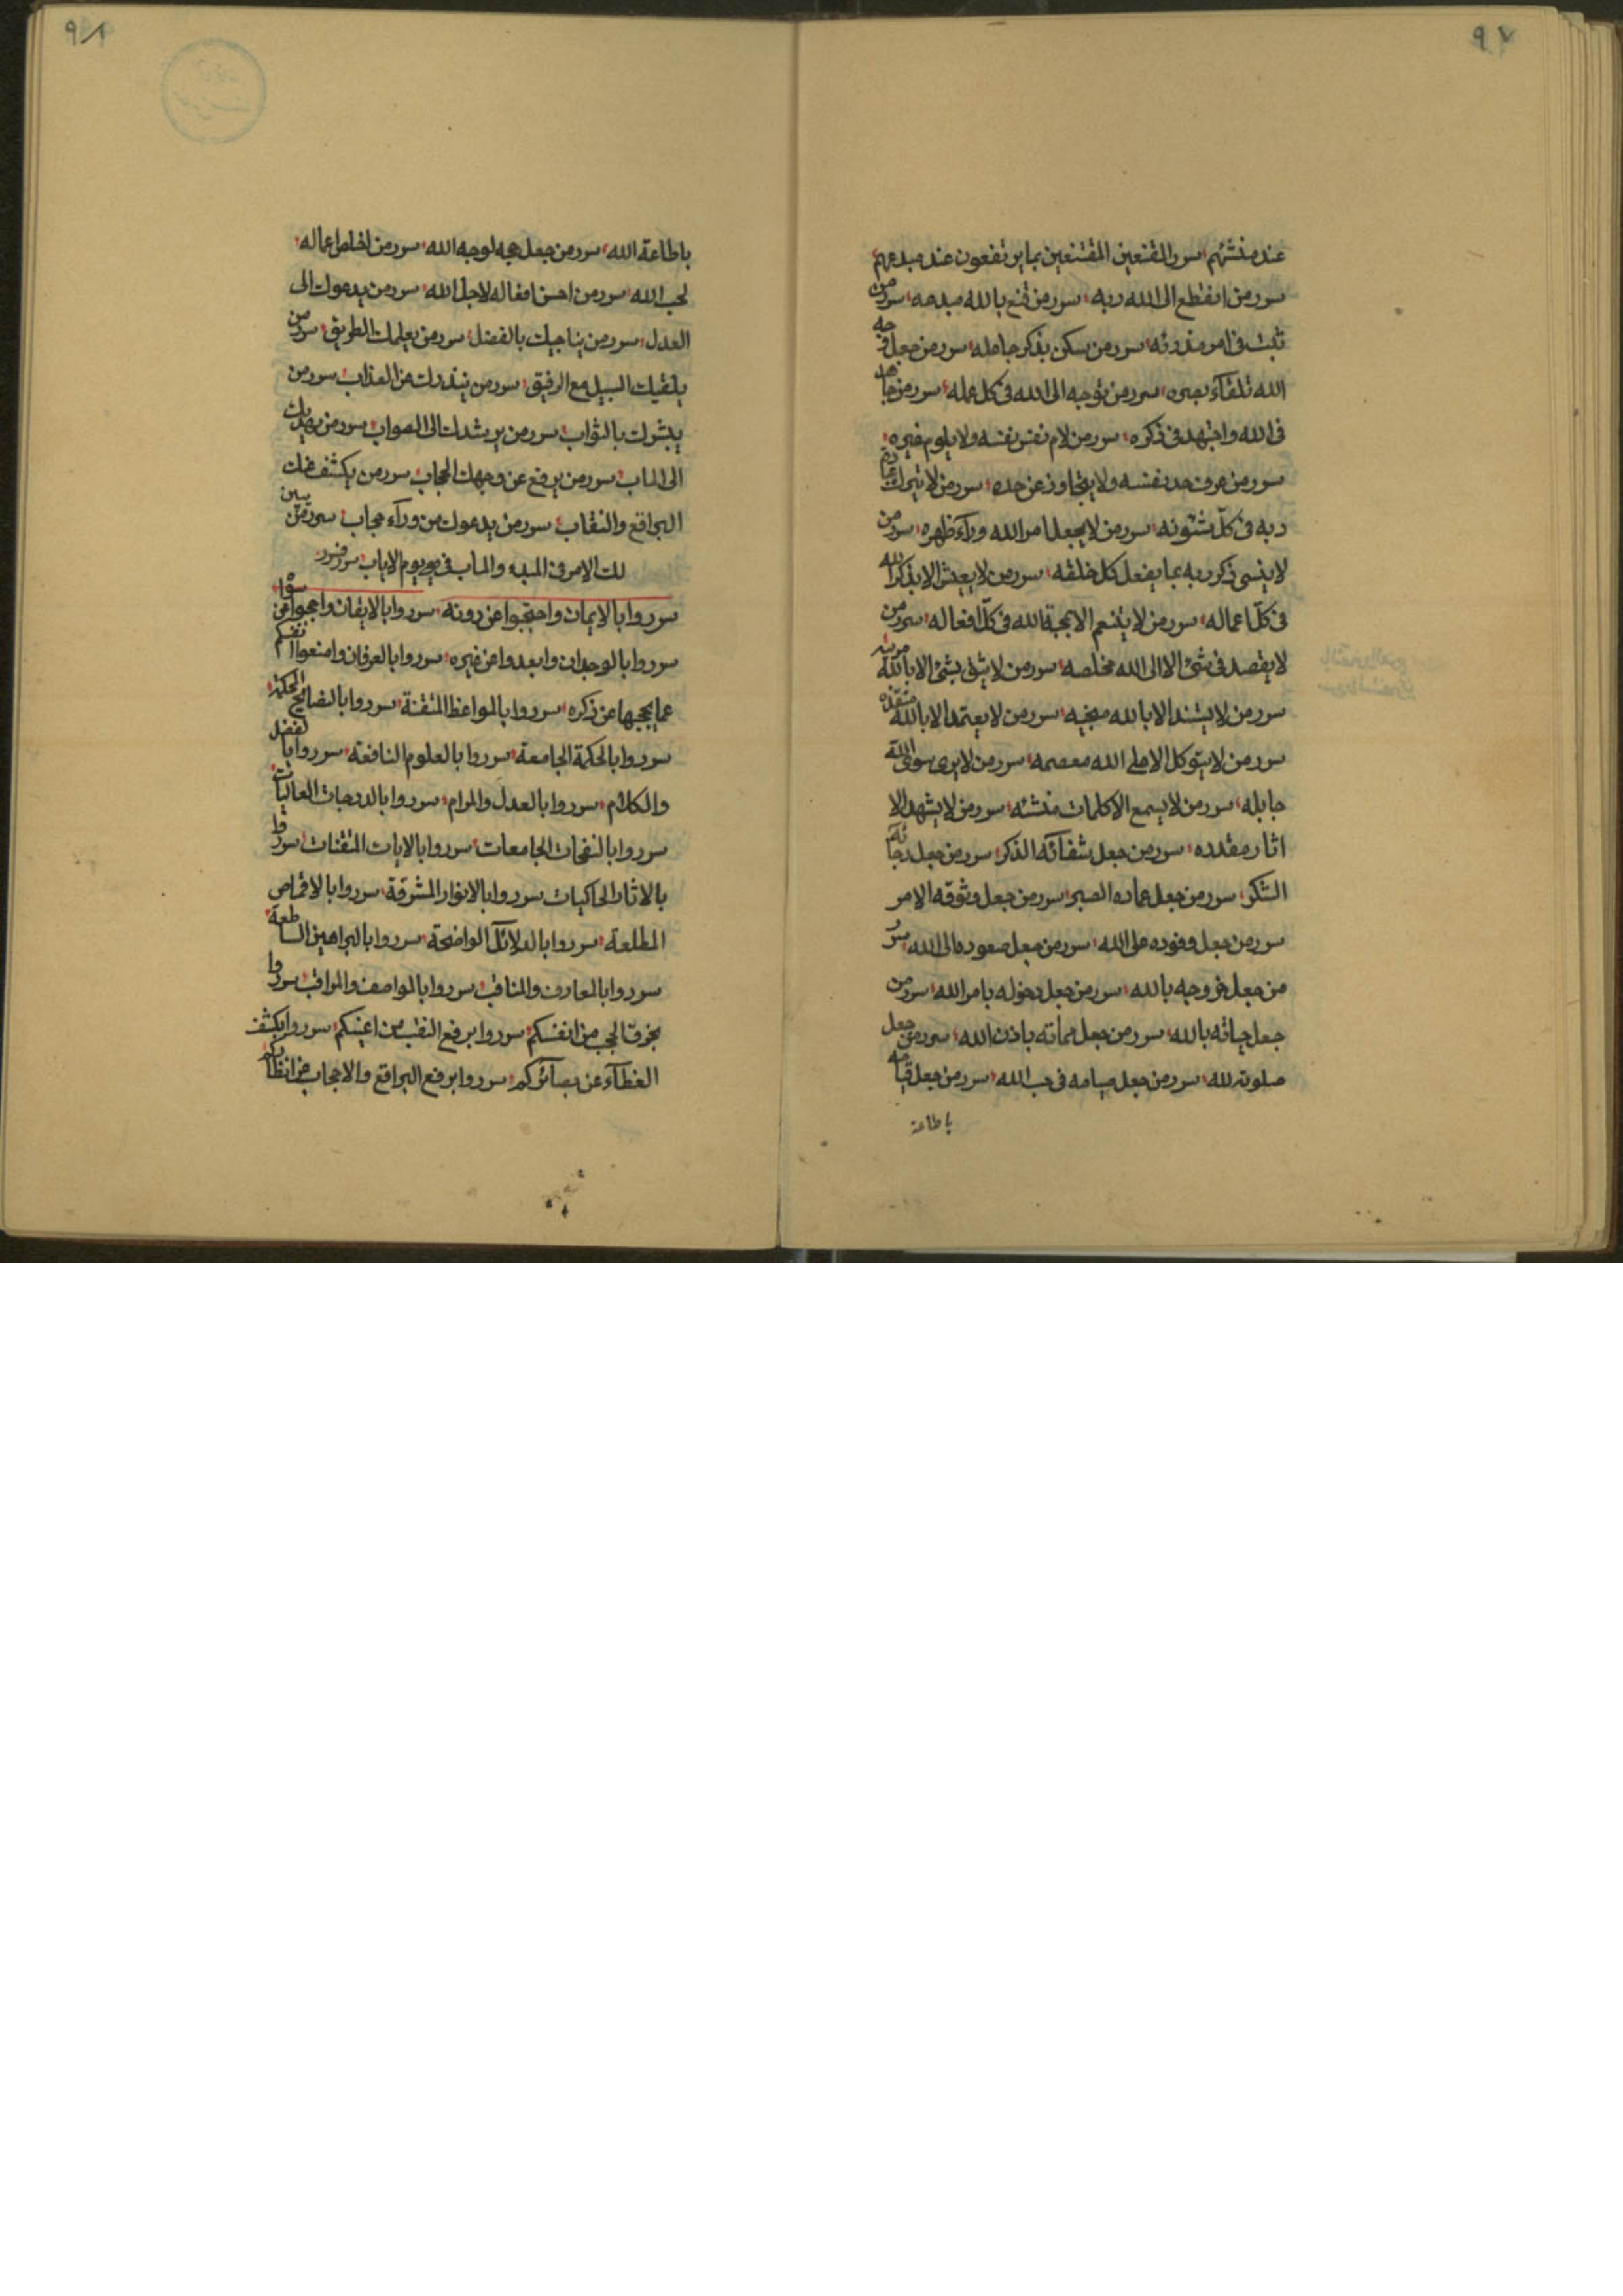 ٩٧
عند منشئهم سور المقنعین المقتنعین بما یرتفعون عند مبدعهم
سور من انقطع الی الله ربه سور من قنع بالله مبدعه سور من
ثبت فی امر منذرئه سور من سکن بذکر جاعله سور من جعل وجه
الله تلقآء بصره سور من توجه الی الله فی کل عمله سور من جاهد
فی الله واجتهد فی ذکره سور من لام نفس نفسه ولا یلوم غیره
سور من عرف حد نفسه ولا یتجاوز عن حده سور من لا یترک عبادة
ربه فی کل شئونه سور من لا یجعل امر الله ورآء ظهره سور من
لا ینسی ذکر ربه بما یفعل کل خلقه سور من لا یعیش الا بذکر الله
فی کل اعماله سور من لا یتنعم الا بمحبة الله فی کل افعاله سور من
لا یقصد فی شئ الا الی الله مخلصه سور من لا یثق بشئ الا بالله
سور من لا یستند الا بالله منجیه سور من لا یعتمد الا بالله منقذه
سور من لا یتوکل الا علی الله معصمه سور من لا یری سوی الله
جابله سور من لا یسمع الا کلمات منشئه سور من لا یشهد الا
اثار مقدره سور من جعل شفائه الذکر سور من جعل رجائه
الشکر سور من جعل عماده الصبر سور من جعل وثوقه الامر
سور من جعل وفوده علی الله سور من جعل صعوده الی الله سور
من جعل خروجه بالله سور من جعل دخوله بامر الله سور من
جعل حیاته بالله سور من جعل مماته باذن الله سور من جعل
صلوته لله سور من جعل صیامه فی حب الله سور من جعل قیامه
باطاعة
٩٨
باطاعة الله سور من جعل حجه لوجه الله سور من اخلص اعماله
لحب الله سور من احسن افعاله لاجل الله سور من یدعوک الی
العدل سور من یناجیک بالفضل سور من یعلمک الطریق سور من
یلقیک السبیل مع الرفیق سور من ینذرک من العذاب سور من
یبشرک بالثواب سور من یرشدک الی الصواب سور من یهدیک
الی الماب سور من یرفع عن وجهک الحجاب سور من یکشف عنک
البراقع والنقاب سور من یدعوک من ورآء حجاب سور من یبین
لک الامر فی المبدء والماب فی یوم الایاب
سوروا بالایمان واحتجبوا عن دونه سوروا بالایقان واحجبوا عن سوائه
سوروا بالوجدان وابعدوا عن غیره سوروا بالعرفان وامنعوا انفسکم
عما یحجبها عن ذکره سوروا بالمواعظ المتقنة سوروا بالنصایح المحکمة
سوروا بالحکمة الجامعة سوروا بالعلوم النافعة سوروا بالفضل
والکلام سوروا بالعدل والمرام سوروا بالدرجات العالیات
سوروا بالنفحات الجامعات سوروا بالایات المتقنات سوروا
بالاثار الحاکیات سوروا بالانوار المشرقة سوروا بالاقماص
المطلعة سوروا بالدلائل الواضحة سوروا بالبراهین الساطعة
سوروا بالمعارف والمناقب سوروا بالمواصف والمراقب سوروا
بخرق الحجب من انفسکم سوروا برفع النقب من اعینکم سوروا بکشف
الغطآء عن بصائرکم سوروا برفع البراقع والاحجاب من انظارکم